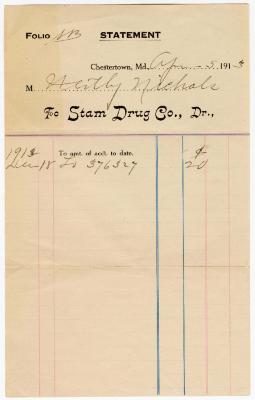 FOLIO STATEMENT
Chestertown, Md., Apr - 5 - 1913
M Nichols
To Stam Drug Co., Dr.,
1912 To amt. of acct. to date. $
Dec 18 To 376327 20